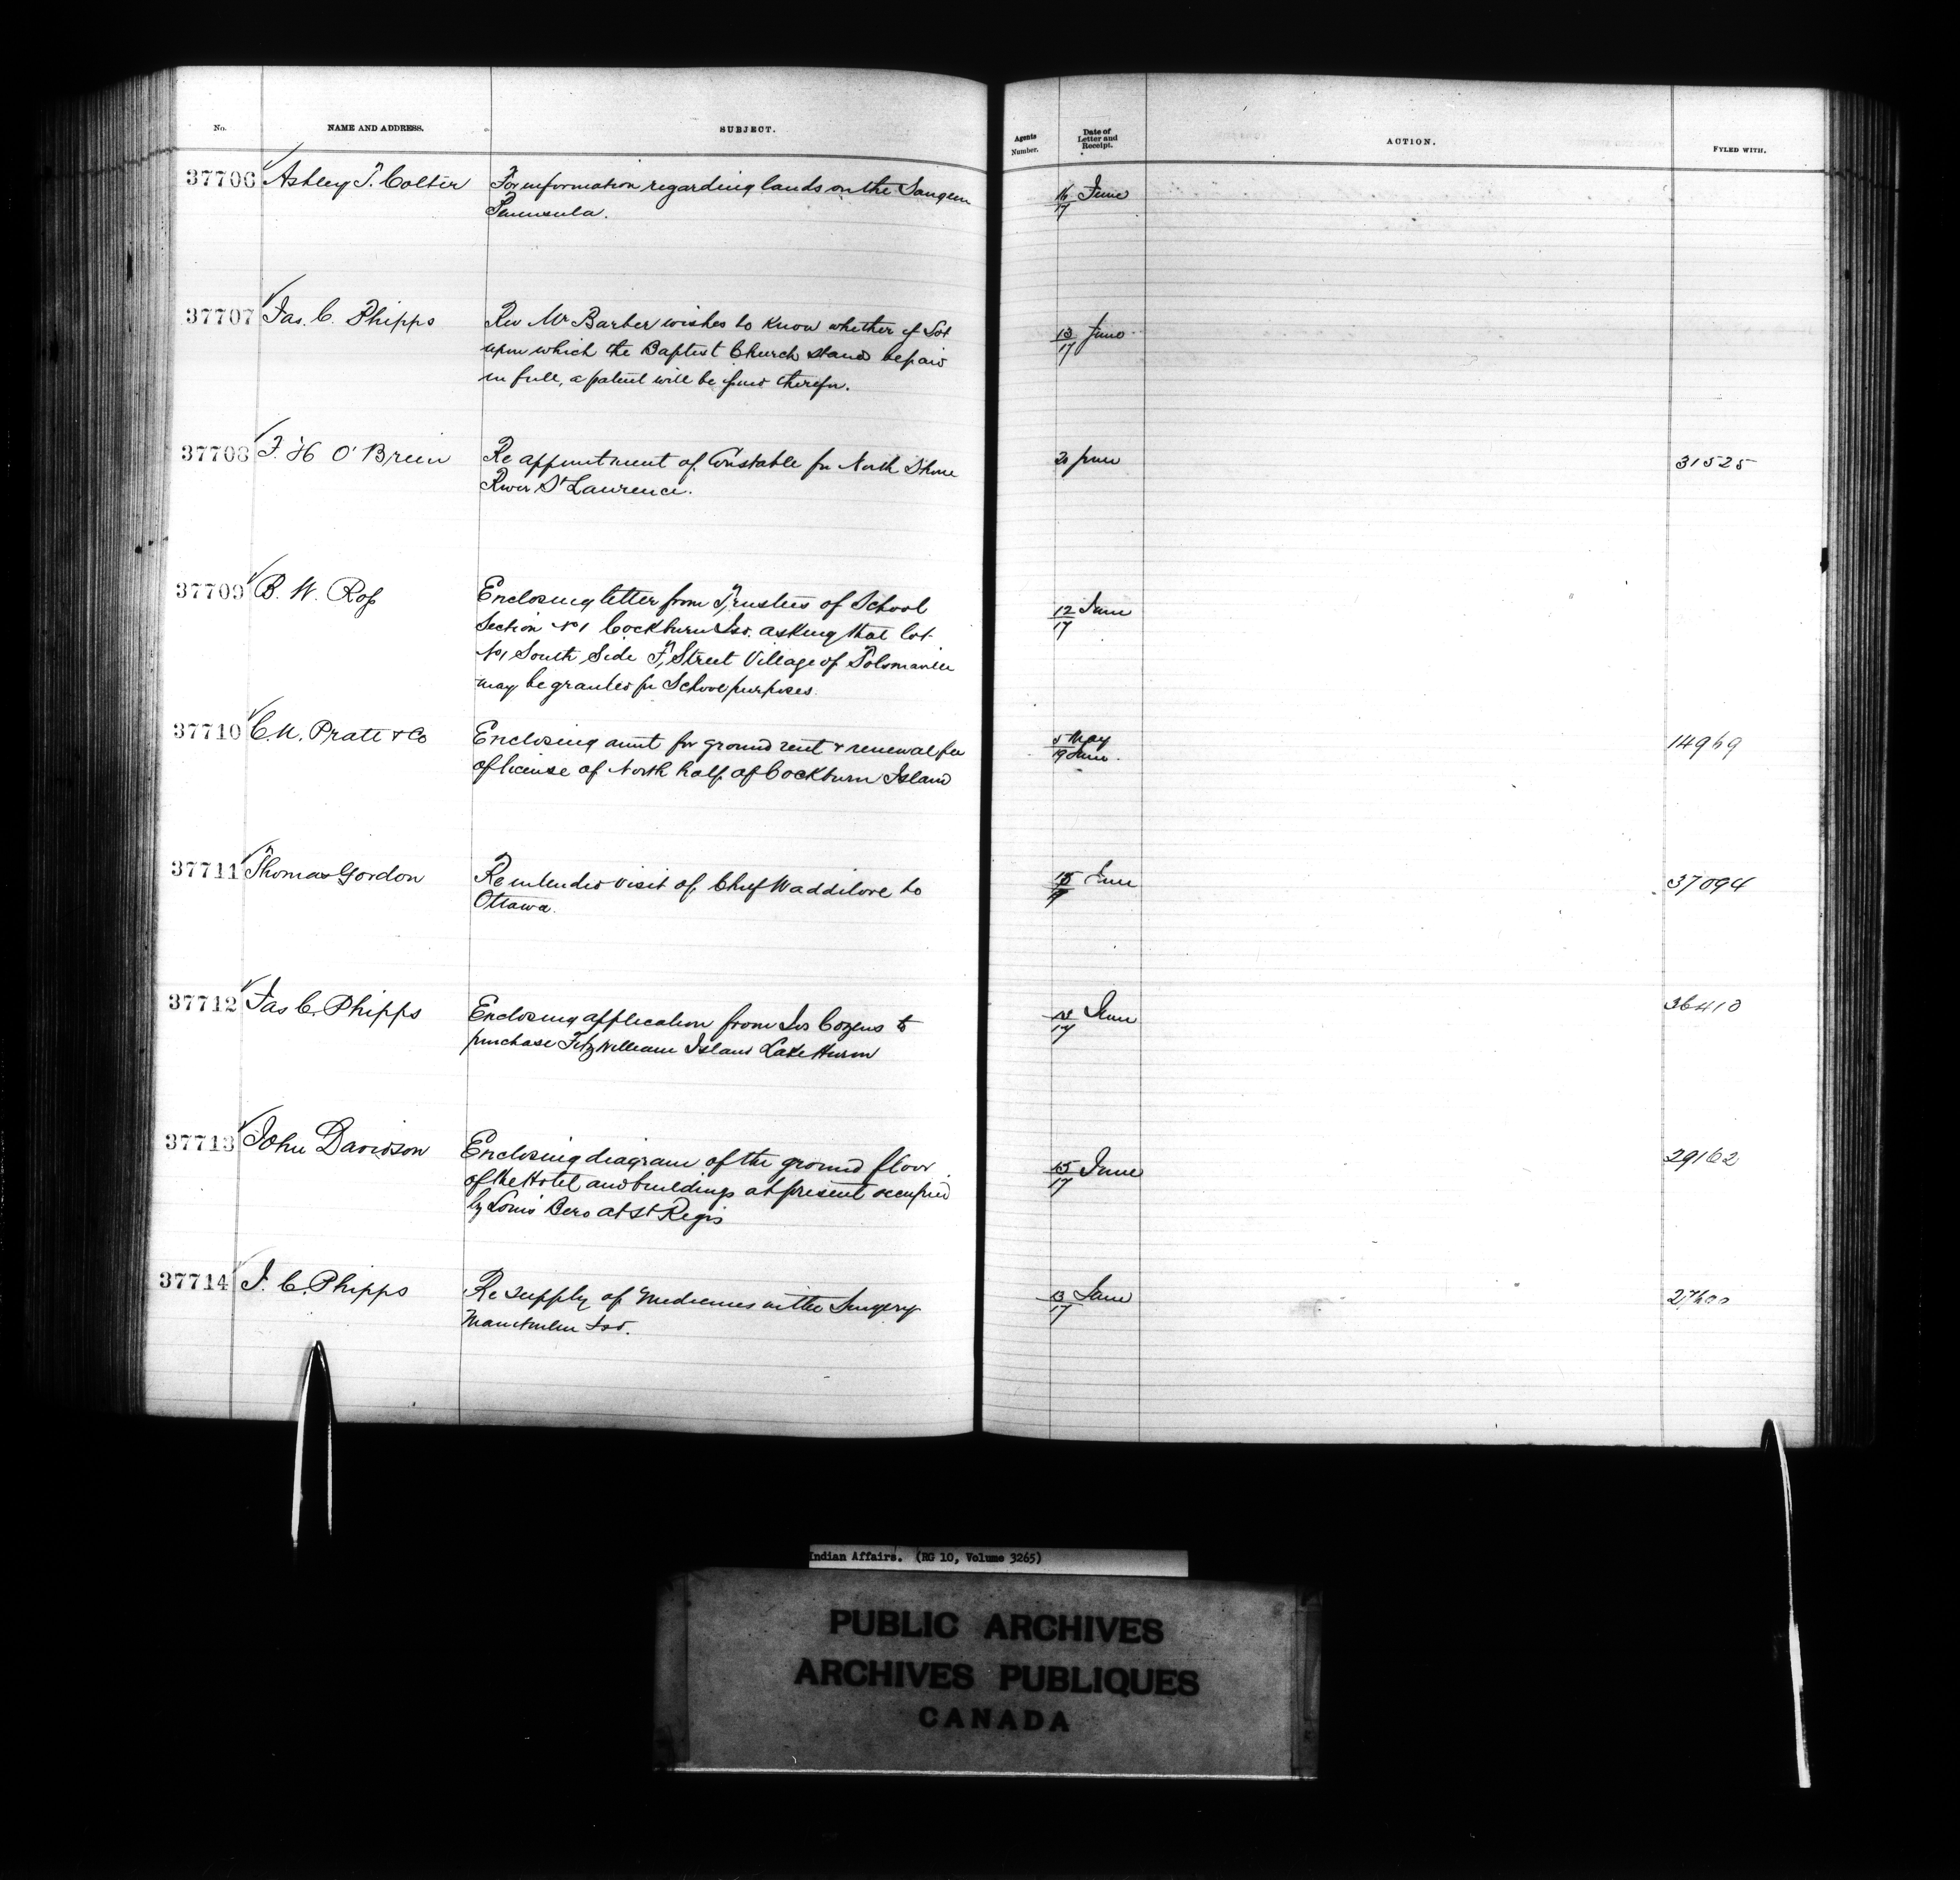 No. NAME AND ADDRESS. SUBJECT. Agents Number. Date of Letter and Receipt. ACTION. FYLED WITH.
37706 Ashley T. Colter For information regarding lands on the Saugeen 16/17 June
Peninsula.
37707 Jas. C. Phipps Rev Mr Barber wishes to know whether if Lot 13/17 June
upon which the Baptist Church stands be paid
in full, a patent will be issued therefor.
37708 F. H O'Brien Re appointment of Constable for North Shore 20 June 31525
River St Lawrence.
37709 B. W. Ross Enclosing letter from Trustees of School 12/17 June
Section No 1 Cockburn Isd. asking that lot
No 1 South Side F, Street Village of Tolsmaville
may be granted for School purposes.
37710 C. N. Pratt & Co Enclosing amt for ground rent & renewal fee 5 May 19 June. 14969
of license of North half of Cockburn Island
37711 Thomas Gordon Re intended visit of Chief Waddilove to June 37094
Ottawa.
37712 Jas C. Phipps Enclosing application from Jos Cozens to 13/17 June 36410
purchase Fitzwilliam Island Lake Huron
37713 John Davidson Enclosing diagram of the ground floor 15/17 June 29162
of the Hotel and buildings at present occupied
by Louis Bero at St Regis
37714 J. C. Phipps Re supply of Medicines in the Surgery 13/17 June 27600
Manitoulin Isd.
Indian Affairs. (RG 10, Volume 3265)
PUBLIC ARCHIVES
ARCHIVES PUBLIQUES
CANADA